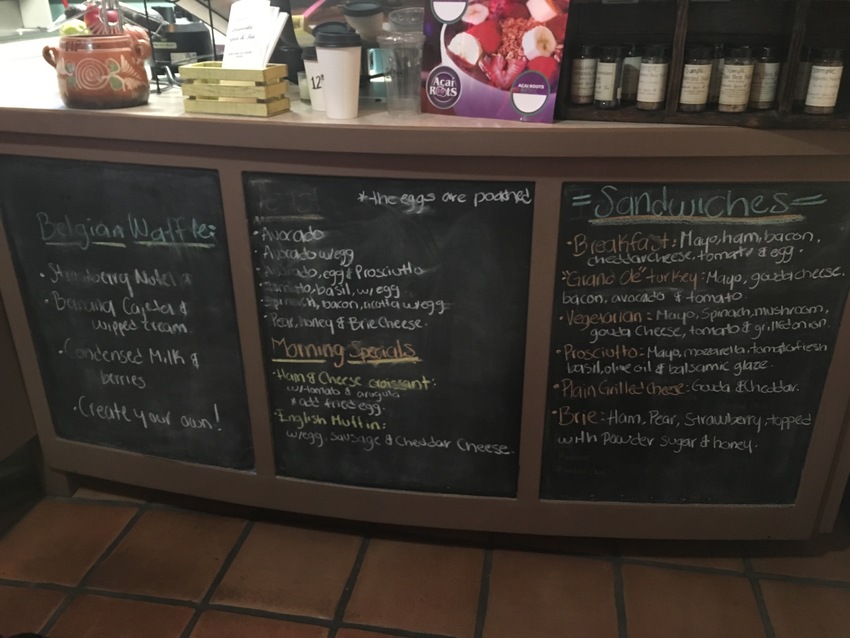 Belgian Waffles
• Strawberry Nutella
• Banana Cajeta &
wipped cream
• Condensed Milk &
berries
• Create your own!
*the eggs are poached
• Avocado
• Avocado w/egg
• Avocado, egg & Prosciutto
basil, w/egg
• Spinach, bacon, ricotta w/egg
• Pear, honey & Brie Cheese.
Morning Specials
• Ham & Cheese croissant:
w/tomato & arugula
* add fried egg.
• English Muffin:
w/egg, sausage & Cheddar Cheese.
= Sandwiches =
• Breakfast: Mayo, ham, bacon,
cheddar cheese, tomato & egg.
• "Grand Ole" turkey: Mayo, gouda cheese,
bacon, avocado & tomato.
• Vegetarian: Mayo, Spinach, mushroom,
gouda Cheese, tomato & grilled onion.
• Prosciutto: Mayo, mozarella, tomato, fresh
basil, olive oil & balsamic glaze.
• Plain Grilled Cheese: Gouda & Cheddar.
• Brie: Ham, Pear, Strawberry, topped
with Powder sugar & honey.
12
Acai
ROOTS
ACAI ROOTS